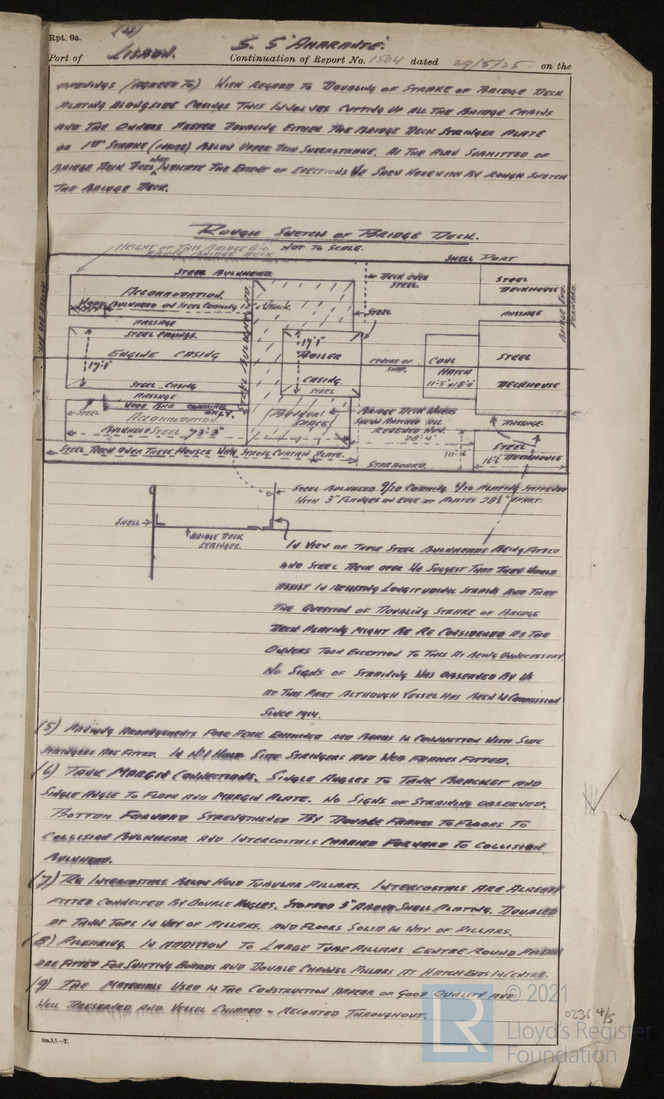 Rpt. 9a.
Port of LISBON. S.S. "AMARANTE".
Continuation of Report No. 1504 dated 29/5/25 on the
OPENINGS (AGREED TO) WITH REGARD TO DOUBLING OF STRAKE OF BRIDGE DECK
PLATING ALONGSIDE CASINGS THIS INVOLVES CUTTING UP ALL THE BRIDGE CHAINS
AND THE OWNERS PREFER DOUBLING EITHER THE BRIDGE DECK STRINGER PLATE
OR 1ST STRAKE BELOW UPPER DECK SHEERSTRAKE. AS THE PLAN SUBMITTED OF
BRIDGE DECK DOES NOT INDICATE THE EXTENT OF ERECTIONS WE SHEW HEREWITH BY ROUGH SKETCH
THE BRIDGE DECK.
ROUGH SKETCH OF BRIDGE DECK.
HEIGHT OF THIS BRIDGE 8'0 NOT TO SCALE.
ABOVE BRIDGE DECK
SHELL PORT
STEEL BULKHEAD
DECK OVER
STEEL.
STEEL
DECKHOUSE
ACCOMMODATION.
WOOD BULKHEAD ON STEEL COAMING
STEEL
BRIDGE END
FORWARD.
PASSAGE
STEEL CASINGS.
PASSAGE
ENGINE CASING
17'1"
STEEL BULKHEAD
17'1"
BOILER
CASING
STEEL
CENTRE OF
SHIP.
COAL
HATCH
STEEL
DECKHOUSE
STEEL CASING
PASSAGE
STEEL
ACCOMMODATION
BULKHEAD STEEL 73'-3"
BUNKER
SPACE
BRIDGE DECK WHERE
SHEWN HATCHED ALL
RENEWED NOW.
28'4"
PASSAGE.
STEEL
DECKHOUSE
STEEL DECK OVER THESE HOUSES WITH STRONG CURTAIN PLATE.
STARBOARD.
STEEL BULKHEAD 9/20 COAMING 6/20 PLATING STIFFENED
WITH 3" FLANGES ON EDGE OF PLATES 28½" APART.
SHELL
BRIDGE DECK
STRINGER.
IN VIEW OF THESE STEEL BULKHEADS BEING FITTED
AND STEEL DECK OVER WE SUGGEST THAT THEY WOULD
ASSIST IN RESISTING LONGITUDINAL STRAINS AND THAT
THE QUESTION OF DOUBLING STRAKE OF BRIDGE
DECK PLATING MIGHT BE RE CONSIDERED AS THE
OWNERS TOOK EXCEPTION TO THIS AS BEING UNNECESSARY.
NO SIGNS OF STRAINING WAS OBSERVED BY US
AT THIS PART ALTHOUGH VESSEL HAS BEEN IN COMMISSION
SINCE 1914.
(5) PANTING ARRANGEMENTS FORE PEAK EXAMINED AND BEAMS IN CONNECTION WITH SIDE
STRINGERS ARE FITTED. IN NO1 HOLD SIDE STRINGERS AND WEB FRAMES FITTED.
(6) TANK MARGIN CONNECTIONS. SINGLE ANGLES TO TANK BRACKET AND
SINGLE ANGLE TO FLOOR AND MARGIN PLATE. NO SIGNS OF STRAINING OBSERVED.
BOTTOM FORWARD STRENGTHENED BY DOUBLE FRAMES TO FLOORS TO
COLLISION BULKHEAD AND INTERCOSTALS CARRIED FORWARD TO COLLISION
BULKHEAD.
(7) RE INTERCOSTALS BELOW HOLD TUBULAR PILLARS. INTERCOSTALS ARE ALREADY
FITTED CONNECTED BY DOUBLE ANGLES. STOPPED 3" ABOVE SHELL PLATING. DOUBLED
AT TANK TOPS IN WAY OF PILLARS, AND FLOORS SOLID IN WAY OF PILLARS.
(8) PILLARING. IN ADDITION TO LARGE TUBE PILLARS CENTRE ROUND PILLARS
ARE FITTED FOR SHIFTING BOARDS AND DOUBLE CHANNEL PILLARS AT HATCH ENDS IN CENTRE.
(9) THE MATERIALS USED IN THE CONSTRUCTION APPEAR OF GOOD QUALITY AND
WELL PRESERVED AND VESSEL CLEANED & RECOATED THROUGHOUT.
0236 4/5
© 2021
LR
Lloyd's Register
Foundation